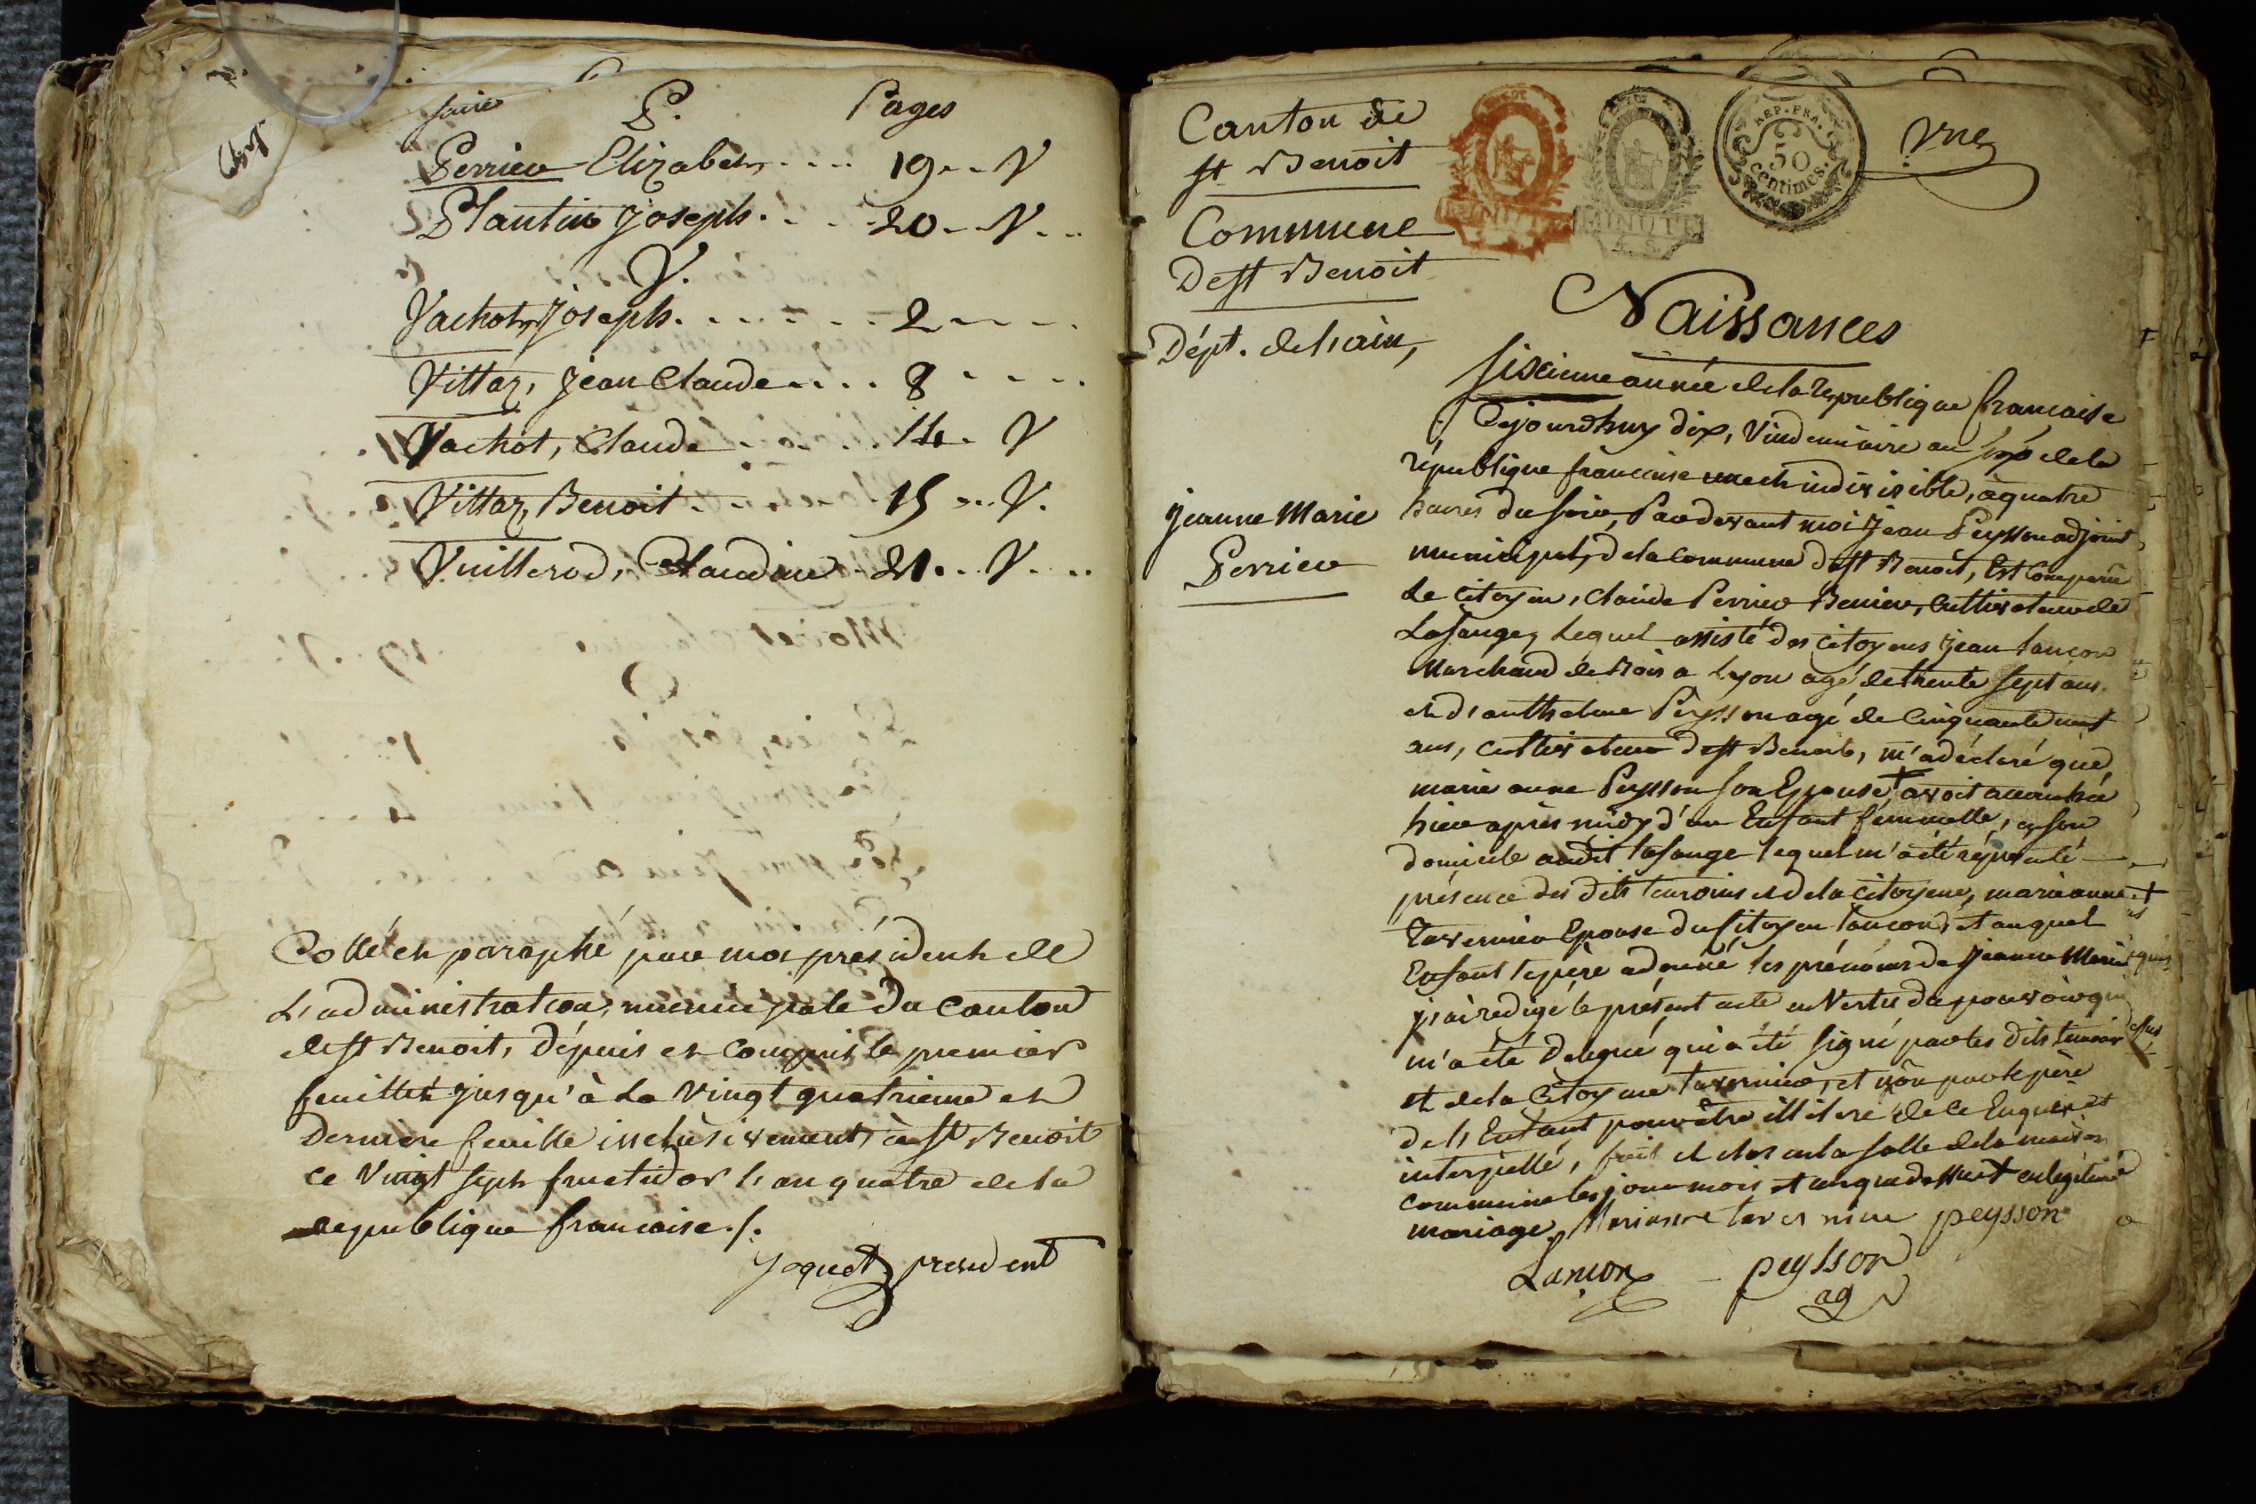 faire P. Pages
Perrier Elizabeth .... 19 .. V
Plantin joseph. . . . 20 .. V. ..
V.
Vachot, joseph. . . . . . . 2 . . . .
Vittoz, jean Claude .... 8 . . . .
Vachot, Claude . . . 14. V
Vittoz, Benoit . . . . . 15 ... V.
Vuillerod, Claudine . 21. . V. ...
Cotté et paraphé par moi président de
L'administration, municipale du Canton
de st Benoit, Dépuis et Compris le premier
feuillet jusqu'à La Vingt quatrieme et
Derniere feuille inclusivement, à st Benoit
Ce Vingt sept fructidor l'an quatre de la
republique francaise ./.
Joquet président
Canton de
st Benoit
Commune
De st Benoit
Dépt. de l'ain,
MINUTE
MINUTE
REP. FRA.
50
centimes.
vne
Naissances
sixieme année de la republique francaise
Cejourdhuy dix, Vindemiaire an six de la
république francaise une et indivisible, a quatre
heures du soir, Par devant moi jean Peysson adjoint
municipal, de la commune de st Benoit, Est Comparu
Le Citoyen, Claude Perrier Cultivateur de
jeanne Marie
Perrier
Lasange, Lequel assisté des Citoyens jean Lançon
Marchand de Bois a Lyon agé de trente sept ans
et d'anthelme Peysson agé de Cinquante neuf
ans, cultivateur de st Benoit, m'a déclaré que
marie anne Peysson son Epouse + avoit accouchée
hier après midy d'un Enfant femmelle, a son
domicile audit lasange lequel m'a été représenté
présence des dits temoins et de la Citoyene, marie anne +
Tavernier Epouse du Citoyen Lançon, et auquel
Enfant le père a donné les prénoms de jeanne Marie
j'ai redigé le présent acte en Vertu du pouvoir qui
m'a été Delegué qui a été signé par les dits temoins
et de la Citoyene tavernier, et non par le père
de l'Enfant pour être illiteré de ce Enquis et
interpellé, fait et clos en la salle de la maison
commune les jour mois et an que dessus + en legitime
mariage. Marianne tavernier peysson
Lancon peysson
ag